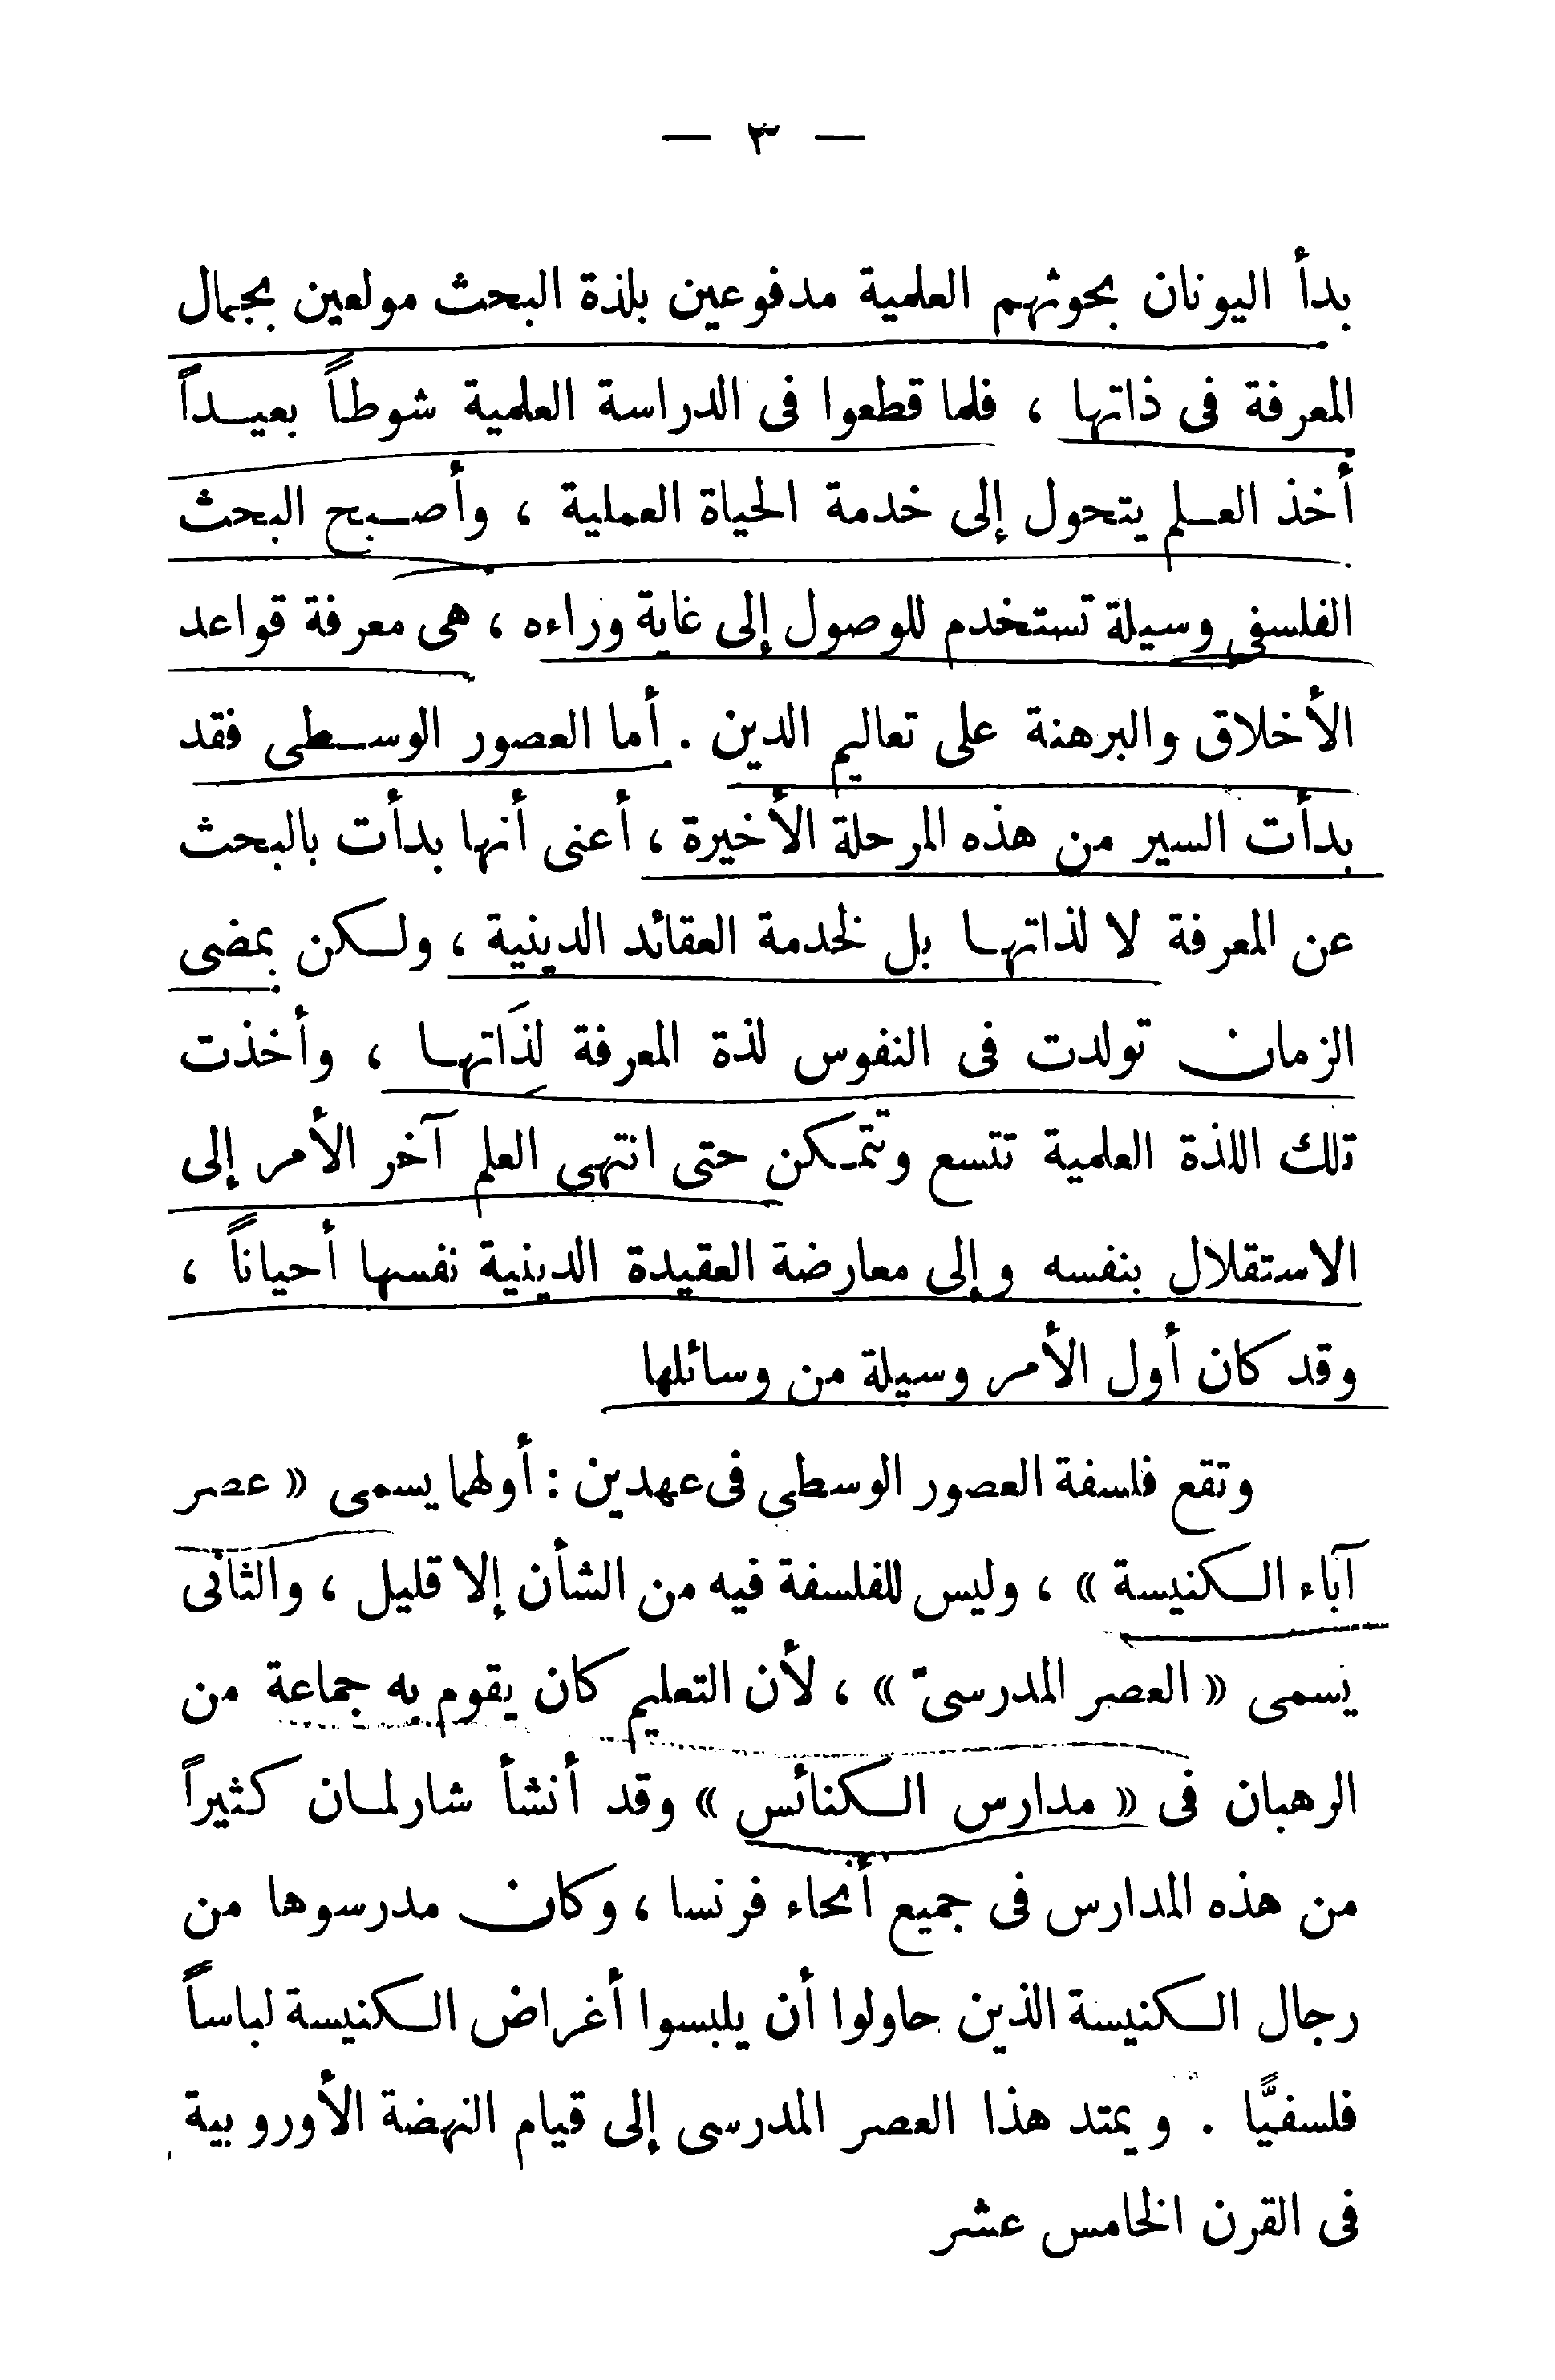 — ٣ —
بدأ اليونان بحوثهم العلمية مدفوعين بلذة البحث مولعين بجمال
المعرفة فى ذاتها ، فلما قطعوا فى الدراسة العلمية شوطاً بعيـداً
أخذ العـلم يتحول إلى خدمة الحياة العملية ، وأصـبح البحث
الفلسفى وسيلة تستخدم للوصول إلى غاية وراءه ، هى معرفة قواعد
الأخلاق والبرهنة على تعاليم الدين . أما العصور الوسـطى فقد
بدأت السير من هذه المرحلة الأخيرة ، أعنى أنها بدأت بالبحث
عن المعرفة لا لذاتهـا بل لخدمة العقائد الدينية ، ولـكن بمضى
الزمان تولدت فى النفوس لذة المعرفة لِذَاتهـا ، وأخذت
تلك اللذة العلمية تتسع وتتمـكن حتى انتهى العلم آخر الأمر إلى
الاستقلال بنفسه وإلى معارضة العقيدة الدينية نفسها أحياناً ،
وقد كان أول الأمر وسيلة من وسائلها
وتقع فلسفة العصور الوسطى فى عهدين : أولهما يسمى « عصر
آباء الـكنيسة » ، وليس للفلسفة فيه من الشأن إلا قليل ، والثانى
يسمى « العصر المدرسىّ » ، لأن التعليم كان يقوم به جماعة من
الرهبان فى « مدارس الـكنائس » وقد أنشأ شارلمـان كثيراً
من هذه المدارس فى جميع أنحاء فرنسا ، وكان مدرسوها من
رجال الـكنيسة الذين حاولوا أن يلبسوا أغراض الـكنيسة لباساً
فلسفيًّا . ويمتد هذا العصر المدرسى إلى قيام النهضة الأوروبية
فى القرن الخامس عشر